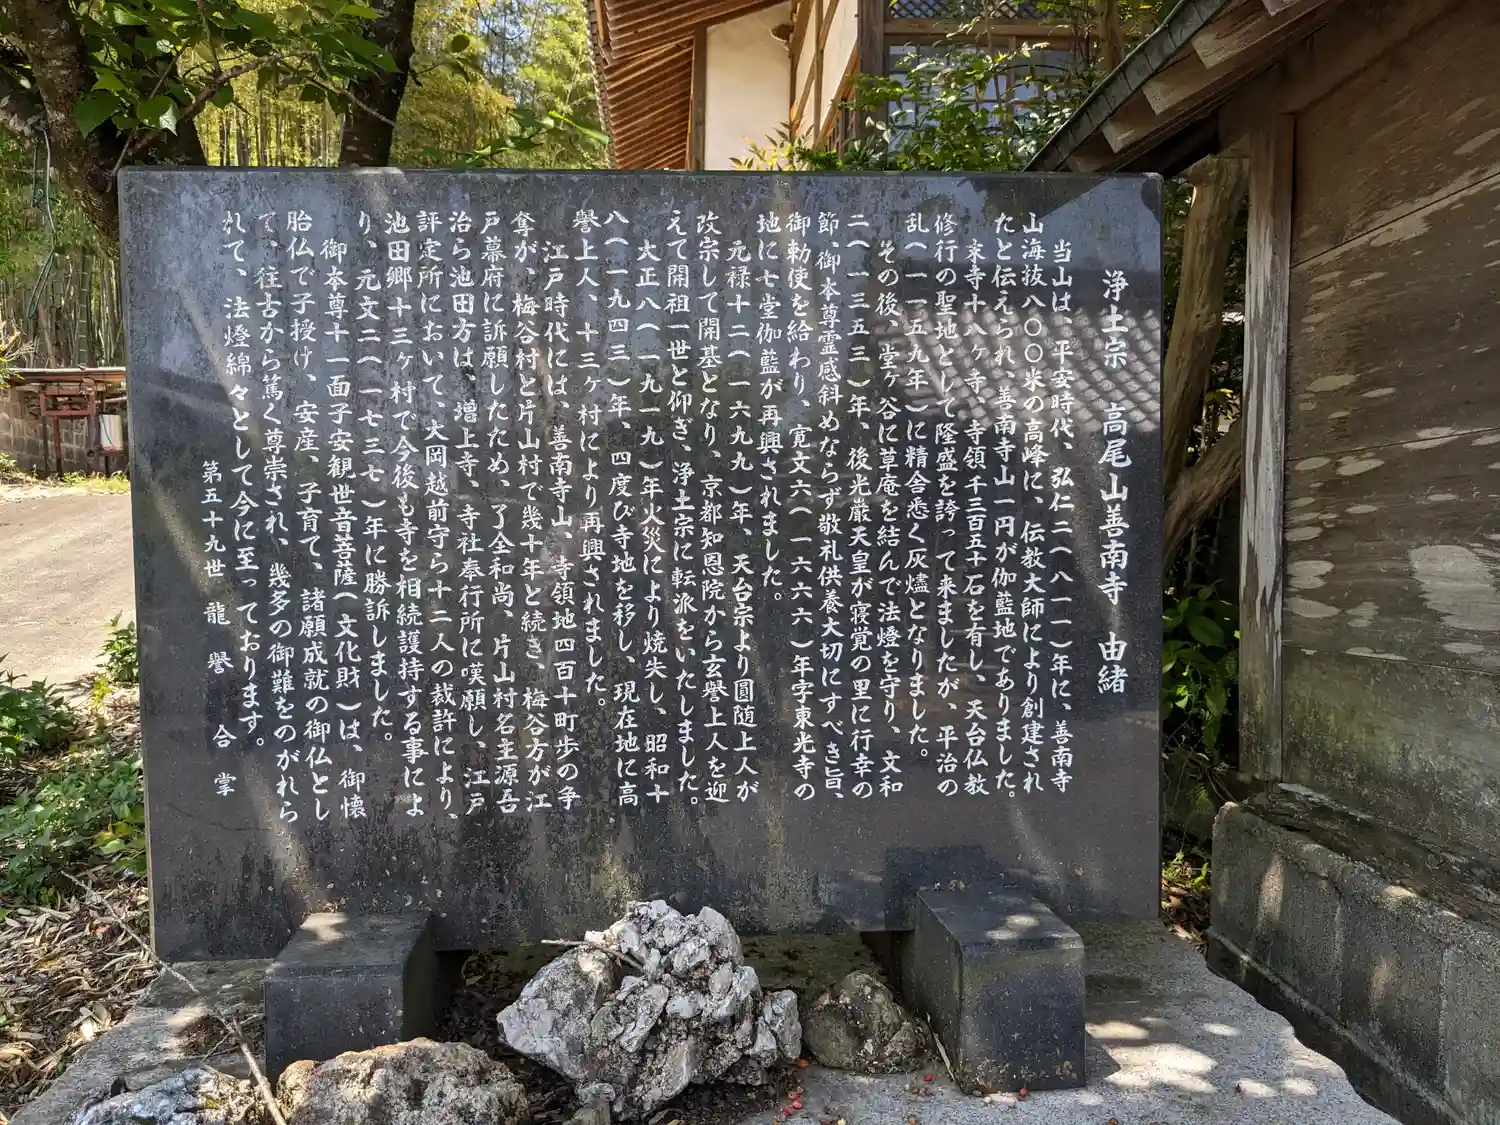 浄土宗 高尾山善南寺 由緒
当山は、平安時代、弘仁二(八一一)年に、善南寺
山海抜八〇〇米の高峰に、伝教大師により創建され
たと伝えられ、善南寺山一円が伽藍地でありました。
末寺十八ヶ寺、寺領千三百五十石を有し、天台仏教
修行の聖地として隆盛を誇って来ましたが、平治の
乱(一一五九年)に精舎悉く灰燼となりました。
その後、堂ヶ谷に草庵を結んで法燈を守り、文和
二(一三五三)年、後光厳天皇が寝覚の里に行幸の
節、御本尊霊感斜めならず敬礼供養大切にすべき旨、
御勅使を給わり、寛文六(一六六六)年字東光寺の
地に七堂伽藍が再興されました。
元禄十二(一六九九)年、天台宗より圓随上人が
改宗して開基となり、京都知恩院から玄譽上人を迎
えて開祖一世と仰ぎ、浄土宗に転派をいたしました。
大正八(一九一九)年火災により焼失し、昭和十
八(一九四三)年、四度び寺地を移し、現在地に高
譽上人、十三ヶ村により再興されました。
江戸時代には、善南寺山、寺領地四百十町歩の争
奪が、梅谷村と片山村で幾十年と続き、梅谷方が江
戸幕府に訴願したため、了全和尚、片山村名主源吾
治ら池田方は、増上寺、寺社奉行所に嘆願し、江戸
評定所において、大岡越前守ら十二人の裁許により、
池田郷十三ヶ村で今後も寺を相続護持する事によ
り、元文二(一七三七)年に勝訴しました。
御本尊十一面子安観世音菩薩(文化財)は、御懐
胎仏で子授け、安産、子育て、諸願成就の御仏とし
て、往古から篤く尊崇され、幾多の御難をのがれら
れて、法燈綿々として今に至っております。
第五十九世 龍譽 合掌